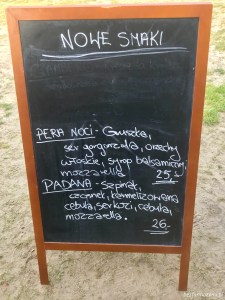 NOWE SMAKI
PERA NOCI - Gruszka,
ser gorgonzola, orzechy
włoskie, syrop balsamiczny,
mozzarella 25,-
PADANA - Szpinak,
czosnek, karmelizowana
cebula, ser kozi, cebula,
mozzarella. 26.-